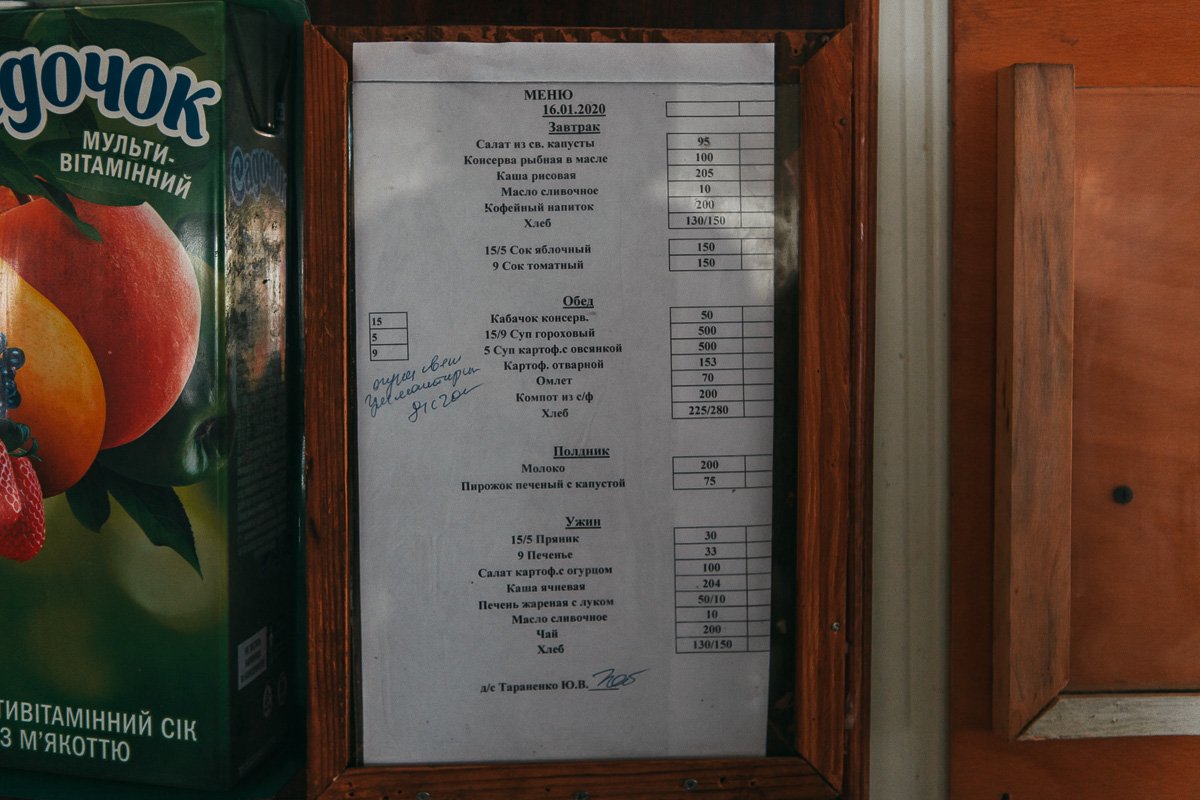 адочок
МУЛЬТИ-
ВІТАМІННИЙ
ТИВІТАМІННИЙ СІК
З М'ЯКОТТЮ
МЕНЮ
16.01.2020
Завтрак
Салат из св. капусты 95
Консерва рыбная в масле 100
Каша рисовая 205
Масло сливочное 10
Кофейный напиток 200
Хлеб 130/150
15/5 Сок яблочный 150
9 Сок томатный 150
Обед
Кабачок консерв. 50
15 15/9 Суп гороховый 500
5 5 Суп картоф.с овсянкой 500
9 Картоф. отварной 153
Омлет 70
Компот из с/ф 200
Хлеб 225/280
Полдник
Молоко 200
Пирожок печеный с капустой 75
Ужин
15/5 Пряник 30
9 Печенье 33
Салат картоф.с огурцом 100
Каша ячневая 204
Печень жареная с луком 50/10
Масло сливочное 10
Чай 200
Хлеб 130/150
д/с Тараненко Ю.В.